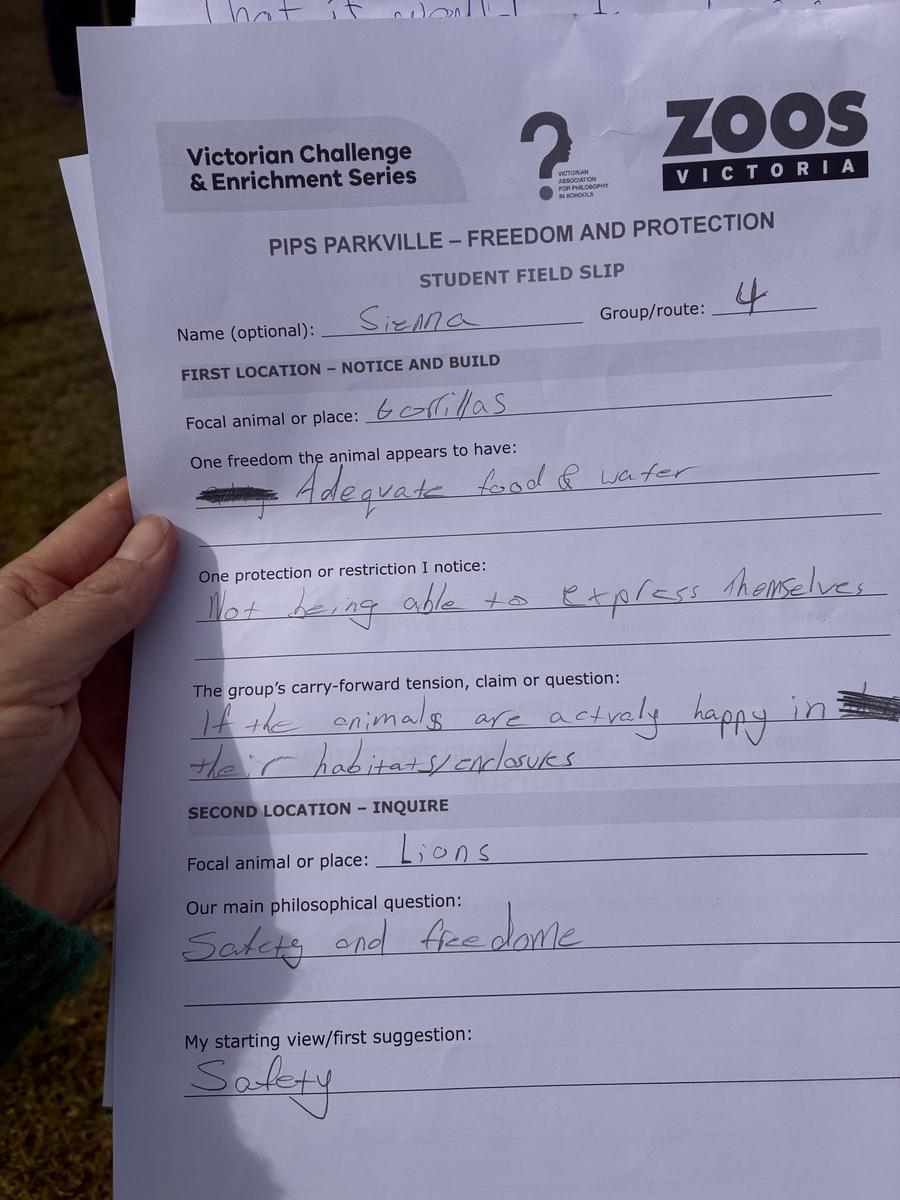 that it would
Victorian Challenge
& Enrichment Series
VICTORIAN
ASSOCIATION
FOR PHILOSOPHY
IN SCHOOLS
ZOOS
VICTORIA
PIPS PARKVILLE – FREEDOM AND PROTECTION
STUDENT FIELD SLIP
Name (optional): Sienna Group/route: 4
FIRST LOCATION – NOTICE AND BUILD
Focal animal or place: Gorillas
One freedom the animal appears to have:
Adequate food & water
One protection or restriction I notice:
Not being able to express themselves
The group's carry-forward tension, claim or question:
If the animals are actualy happy in
their habitats/enclosures
SECOND LOCATION – INQUIRE
Focal animal or place: Lions
Our main philosophical question:
Safety and freedome
My starting view/first suggestion:
Safety